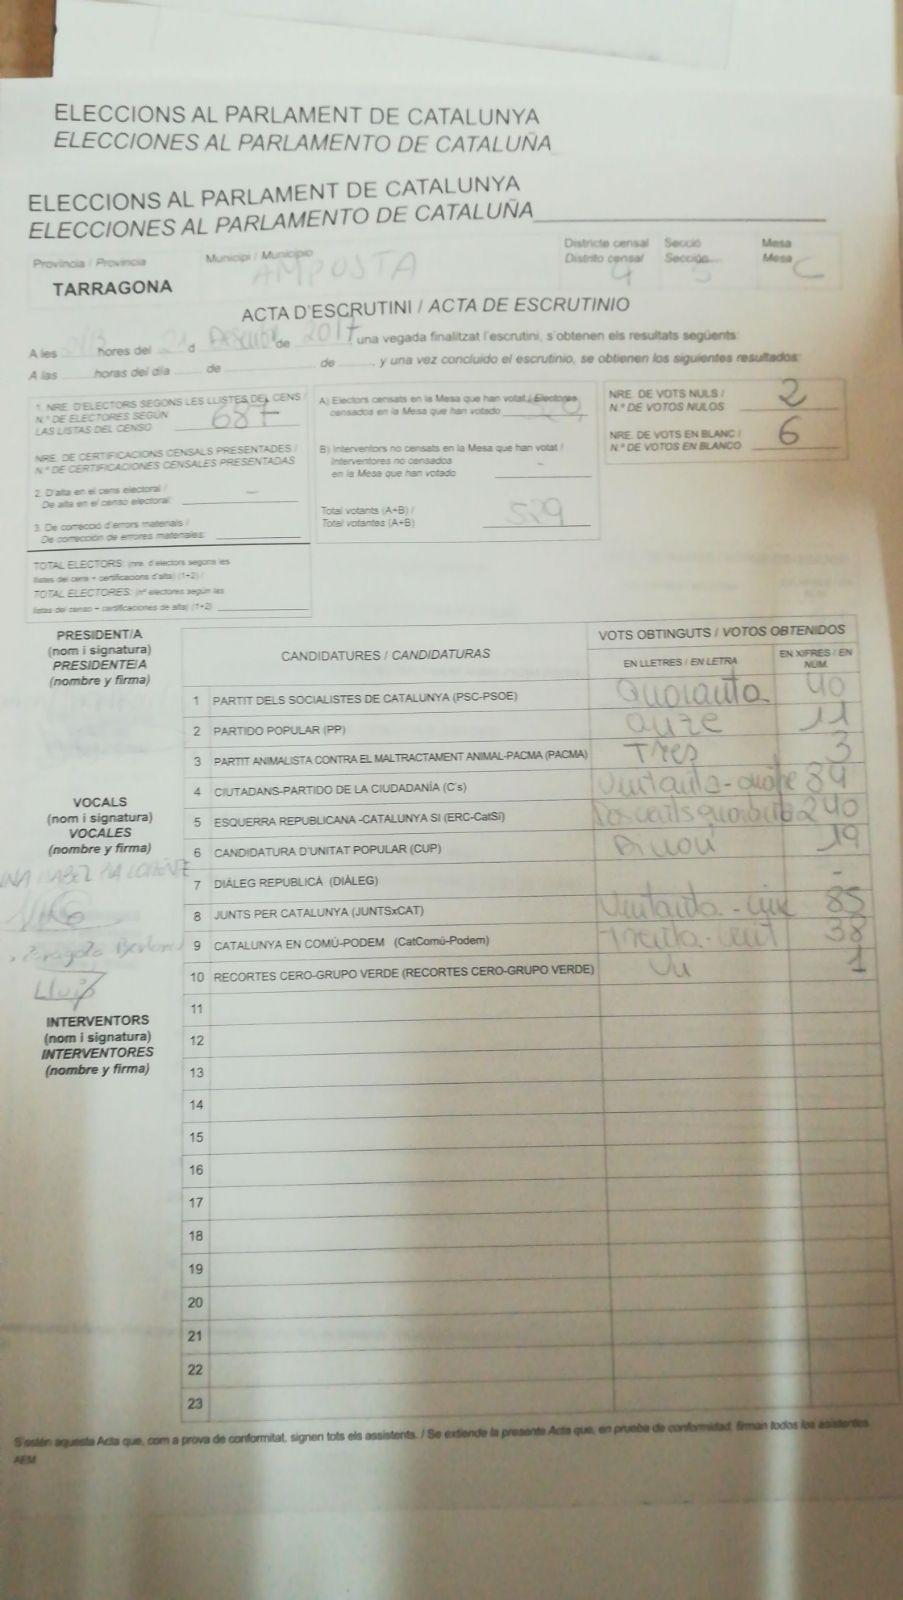 ELECCIONS AL PARLAMENT DE CATALUNYA
ELECCIONES AL PARLAMENTO DE CATALUÑA
ELECCIONS AL PARLAMENT DE CATALUNYA
ELECCIONES AL PARLAMENTO DE CATALUÑA
Província / Provincia
Municipi / Municipio
Districte censal Secció Mesa
Distrito censal Sección Mesa
TARRAGONA AMPOSTA 4 C
ACTA D'ESCRUTINI / ACTA DE ESCRUTINIO
A les hores del 21 d de 2017, una vegada finalitzat l'escrutini, s'obtenen els resultats següents:
A las horas del día de de , y una vez concluido el escrutinio, se obtienen los siguientes resultados:
1. NRE. D'ELECTORS SEGONS LES LLISTES DEL CENS /
N.º DE ELECTORES SEGÚN
LAS LISTAS DEL CENSO 687
NRE. DE CERTIFICACIONS CENSALS PRESENTADES /
N.º DE CERTIFICACIONES CENSALES PRESENTADAS
2. D'alta en el cens electoral /
De alta en el censo electoral: -
3. De correcció d'errors materials /
De corrección de errores materiales:
TOTAL ELECTORS: (nre. d'electors segons les
llistes del cens + certificacions d'alta) (1+2) /
TOTAL ELECTORES: (nº electores según las
listas del censo + certificaciones de alta) (1+2)
A) Electors censats en la Mesa que han votat / Electores
censados en la Mesa que han votado
B) Interventors no censats en la Mesa que han votat /
Interventores no censados
en la Mesa que han votado -
Total votants (A+B) /
Total votantes (A+B) 529
NRE. DE VOTS NULS /
N.º DE VOTOS NULOS 2
NRE. DE VOTS EN BLANC /
N.º DE VOTOS EN BLANCO 6
PRESIDENT/A
(nom i signatura)
PRESIDENTE/A
(nombre y firma)
VOCALS
(nom i signatura)
VOCALES
(nombre y firma)
Lluís
INTERVENTORS
(nom i signatura)
INTERVENTORES
(nombre y firma)
CANDIDATURES / CANDIDATURAS
VOTS OBTINGUTS / VOTOS OBTENIDOS
EN LLETRES / EN LETRA
EN XIFRES / EN
NÚM.
1 PARTIT DELS SOCIALISTES DE CATALUNYA (PSC-PSOE) Quaranta 40
2 PARTIDO POPULAR (PP) onze 11
3 PARTIT ANIMALISTA CONTRA EL MALTRACTAMENT ANIMAL-PACMA (PACMA) Tres 3
4 CIUTADANS-PARTIDO DE LA CIUDADANÍA (C's) Vuitanta-quatre 84
5 ESQUERRA REPUBLICANA -CATALUNYA SI (ERC-CatSí) Doscents quaranta 240
6 CANDIDATURA D'UNITAT POPULAR (CUP) Dinou 19
7 DIÀLEG REPUBLICÀ (DIÀLEG) -
8 JUNTS PER CATALUNYA (JUNTSxCAT) Vuitanta-cinc 85
9 CATALUNYA EN COMÚ-PODEM (CatComú-Podem) Trenta-vuit 38
10 RECORTES CERO-GRUPO VERDE (RECORTES CERO-GRUPO VERDE) Un 1
11
12
13
14
15
16
17
18
19
20
21
22
23
S'estén aquesta Acta que, com a prova de conformitat, signen tots els assistents. / Se extiende la presente Acta que, en prueba de conformidad, firman todos los asistentes.
AEM